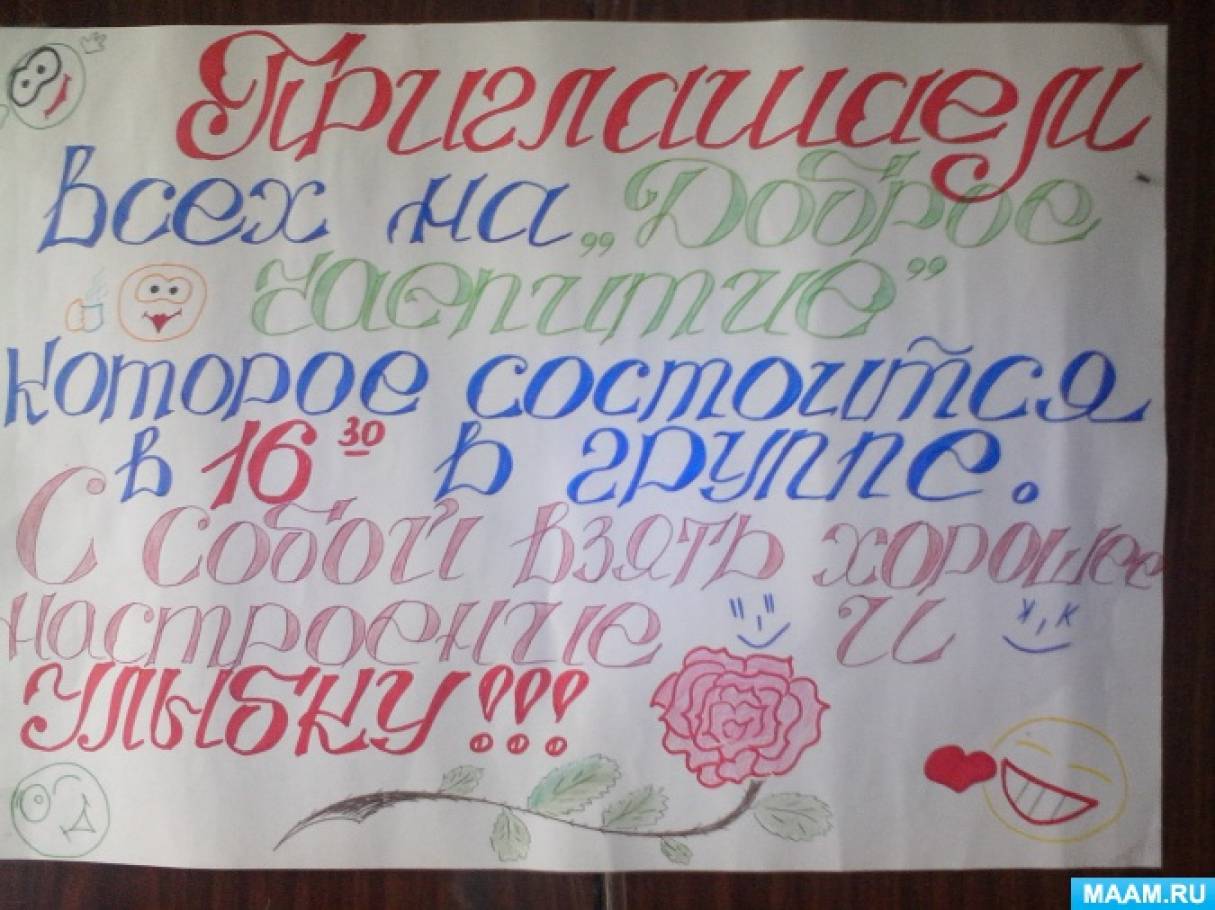 Приглашаем
всех на „Доброе
чаепитие”
которое состоится
в 16 30 в группе.
С собой взять хорошее
настроение и
улыбку!!!
MAAM.RU